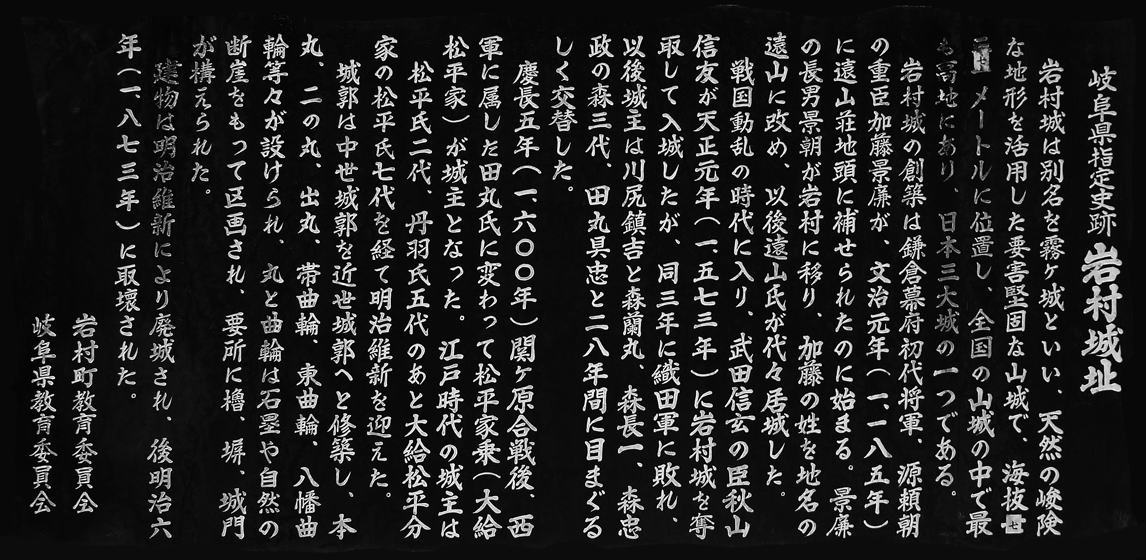 岐阜県指定史跡 岩村城址
岩村城は別名を霧ケ城といい、天然の峻険
な地形を活用した要害堅固な山城で、海抜七
二一メートルに位置し、全国の山城の中で最
も高地にあり、日本三大城の一つである。
岩村城の創築は鎌倉幕府初代将軍、源頼朝
の重臣加藤景廉が、文治元年（一、一八五年）
に遠山荘地頭に補せられたのに始まる。景廉
の長男景朝が岩村に移り、加藤の姓を地名の
遠山に改め、以後遠山氏が代々居城した。
戦国動乱の時代に入り、武田信玄の臣秋山
信友が天正元年（一、五七三年）に岩村城を奪
取して入城したが、同三年に織田軍に敗れ、
以後城主は川尻鎮吉と森蘭丸、森長一、森忠
政の森三代、田丸具忠と二八年間に目まぐる
しく交替した。
慶長五年（一、六〇〇年）関ケ原合戦後、西
軍に属した田丸氏に変わって松平家乗（大給
松平家）が城主となった。江戸時代の城主は
松平氏二代、丹羽氏五代のあと大給松平分
家の松平氏七代を経て明治維新を迎えた。
城郭は中世城郭を近世城郭へと修築し、本
丸、二の丸、出丸、帯曲輪、東曲輪、八幡曲
輪等々が設けられ、丸と曲輪は石塁や自然の
断崖をもって区画され、要所に櫓、塀、城門
が構えられた。
建物は明治維新により廃城され、後明治六
年（一、八七三年）に取壊された。
岩村町教育委員会
岐阜県教育委員会